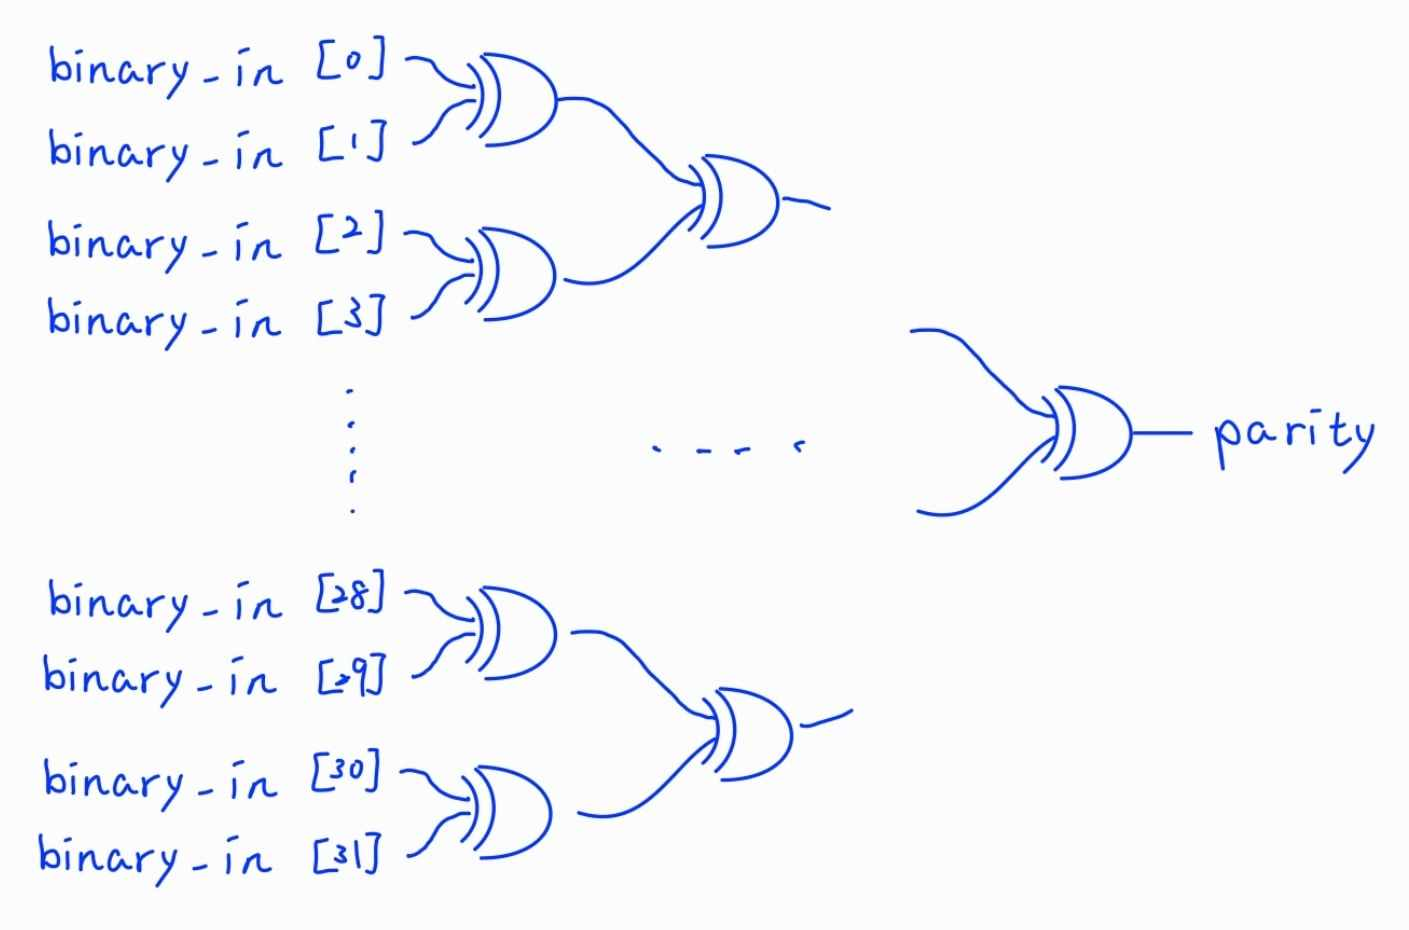 binary_in [0]
binary_in [1]
binary_in [2]
binary_in [3]
parity
binary_in [28]
binary_in [29]
binary_in [30]
binary_in [31]